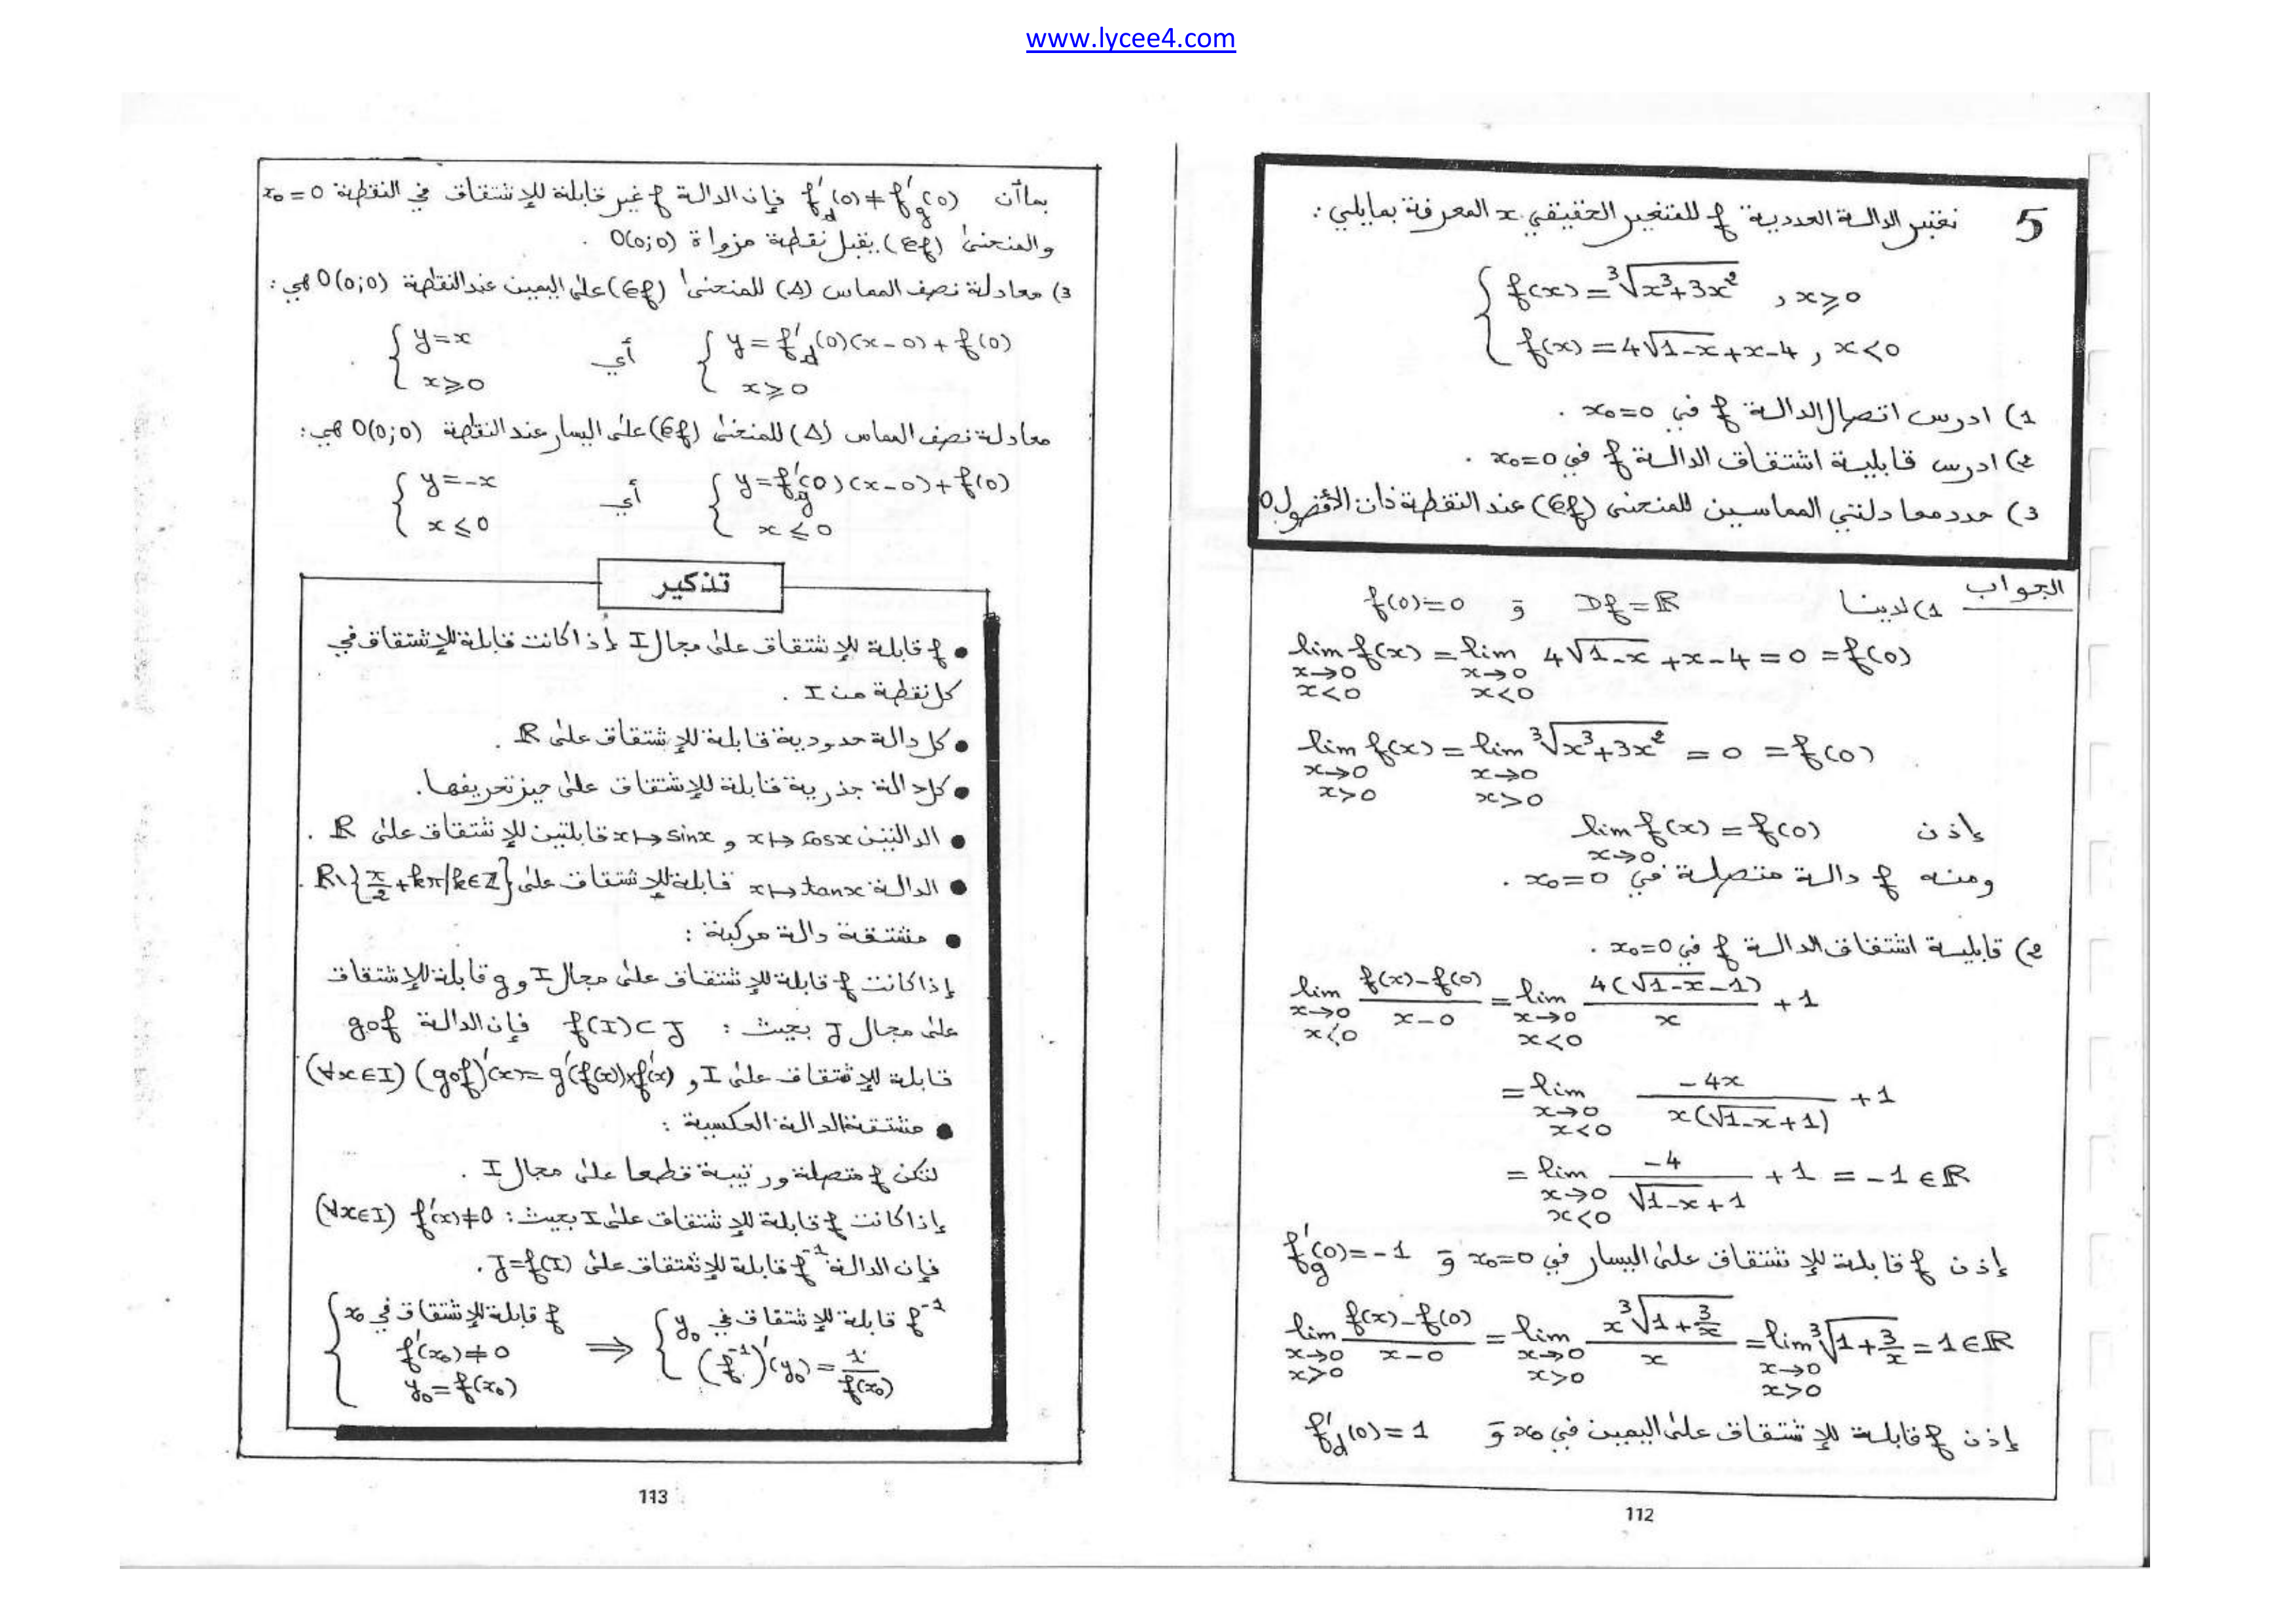 www.lycee4.com
5 نعتبر الدالة العددية f للمتغير الحقيقي x المعرفة بمايلي:
{ f(x) = ∛(x³+3x²) , x ⩾ 0
f(x) = 4√(1-x) + x - 4 , x < 0
1) ادرس اتصال الدالة f في x₀=0 .
2) ادرس قابلية اشتقاق الدالة f في x₀=0 .
3) حدد معادلتي المماسين للمنحنى (𝒞f) عند النقطة ذات الأفصول 0
الجواب 1) لدينا Df = ℝ و f(0) = 0
lim_{x→0, x<0} f(x) = lim_{x→0, x<0} 4√(1-x) + x - 4 = 0 = f(0)
lim_{x→0, x>0} f(x) = lim_{x→0, x>0} ∛(x³+3x²) = 0 = f(0)
إذن lim_{x→0} f(x) = f(0)
ومنه f دالة متصلة في x₀=0 .
2) قابلية اشتقاق الدالة f في x₀=0 .
lim_{x→0, x<0} (f(x)-f(0))/(x-0) = lim_{x→0, x<0} 4(√(1-x) -1)/x + 1
= lim_{x→0, x<0} -4x/(x(√(1-x)+1)) + 1
= lim_{x→0, x<0} -4/(√(1-x)+1) + 1 = -1 ∈ ℝ
إذن f قابلة للإشتقاق على اليسار في x₀=0 و f'g(0) = -1
lim_{x→0, x>0} (f(x)-f(0))/(x-0) = lim_{x→0, x>0} x∛(1+3/x)/x = lim_{x→0, x>0} ∛(1+3/x) = 1 ∈ ℝ
إذن f قابلة للإشتقاق على اليمين في x₀ و f'd(0) = 1
112
بما أن f'd(0) ≠ f'g(0) فإن الدالة f غير قابلة للإشتقاق في النقطة x₀=0
والمنحنى (𝒞f) يقبل نقطة مزواة O(0;0) .
3) معادلة نصف المماس (Δ) للمنحنى (𝒞f) على اليمين عند النقطة O(0;0) هي:
{ y = f'd(0)(x-0) + f(0) , x ⩾ 0 أي { y = x , x ⩾ 0 .
معادلة نصف المماس (Δ) للمنحنى (𝒞f) على اليسار عند النقطة O(0;0) هي:
{ y = f'g(0)(x-0) + f(0) , x ⩽ 0 أي { y = -x , x ⩽ 0
تذكير
• f قابلة للإشتقاق على مجال I إذا كانت قابلة للإشتقاق في
كل نقطة من I .
• كل دالة حدودية قابلة للإشتقاق على ℝ .
• كل دالة جذرية قابلة للإشتقاق على حيز تعريفها.
• الدالتين x↦cosx و x↦sinx قابلتين للإشتقاق على ℝ .
• الدالة x↦tanx قابلة للإشتقاق على ℝ\{π/2 + kπ/k∈ℤ} .
• مشتقة دالة مركبة :
إذا كانت f قابلة للإشتقاق على مجال I و g قابلة للإشتقاق
على مجال J بحيث : f(I) ⊂ J فإن الدالة gof
قابلة للإشتقاق على I و (∀x∈I) (gof)'(x) = g'(f(x))×f'(x)
• مشتقة الدالة العكسية :
لتكن f متصلة ورتيبة قطعا على مجال I .
إذا كانت f قابلة للإشتقاق على I بحيث : (∀x∈I) f'(x) ≠ 0
فإن الدالة f⁻¹ قابلة للإشتقاق على J = f(I) .
{ f قابلة للإشتقاق في x₀ , f'(x₀) ≠ 0 , y₀ = f(x₀) ⟹ { f⁻¹ قابلة للإشتقاق في y₀ , (f⁻¹)'(y₀) = 1/f(x₀)
113